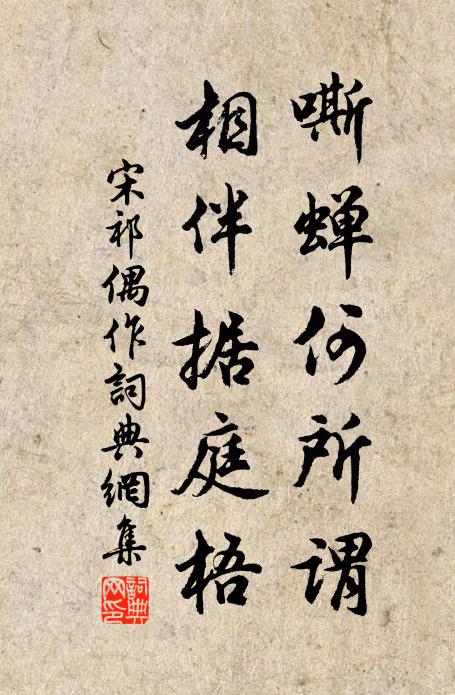 嘶蝉何所谓
相伴据庭梧
宋祁偶作詞典網集
詞典网印